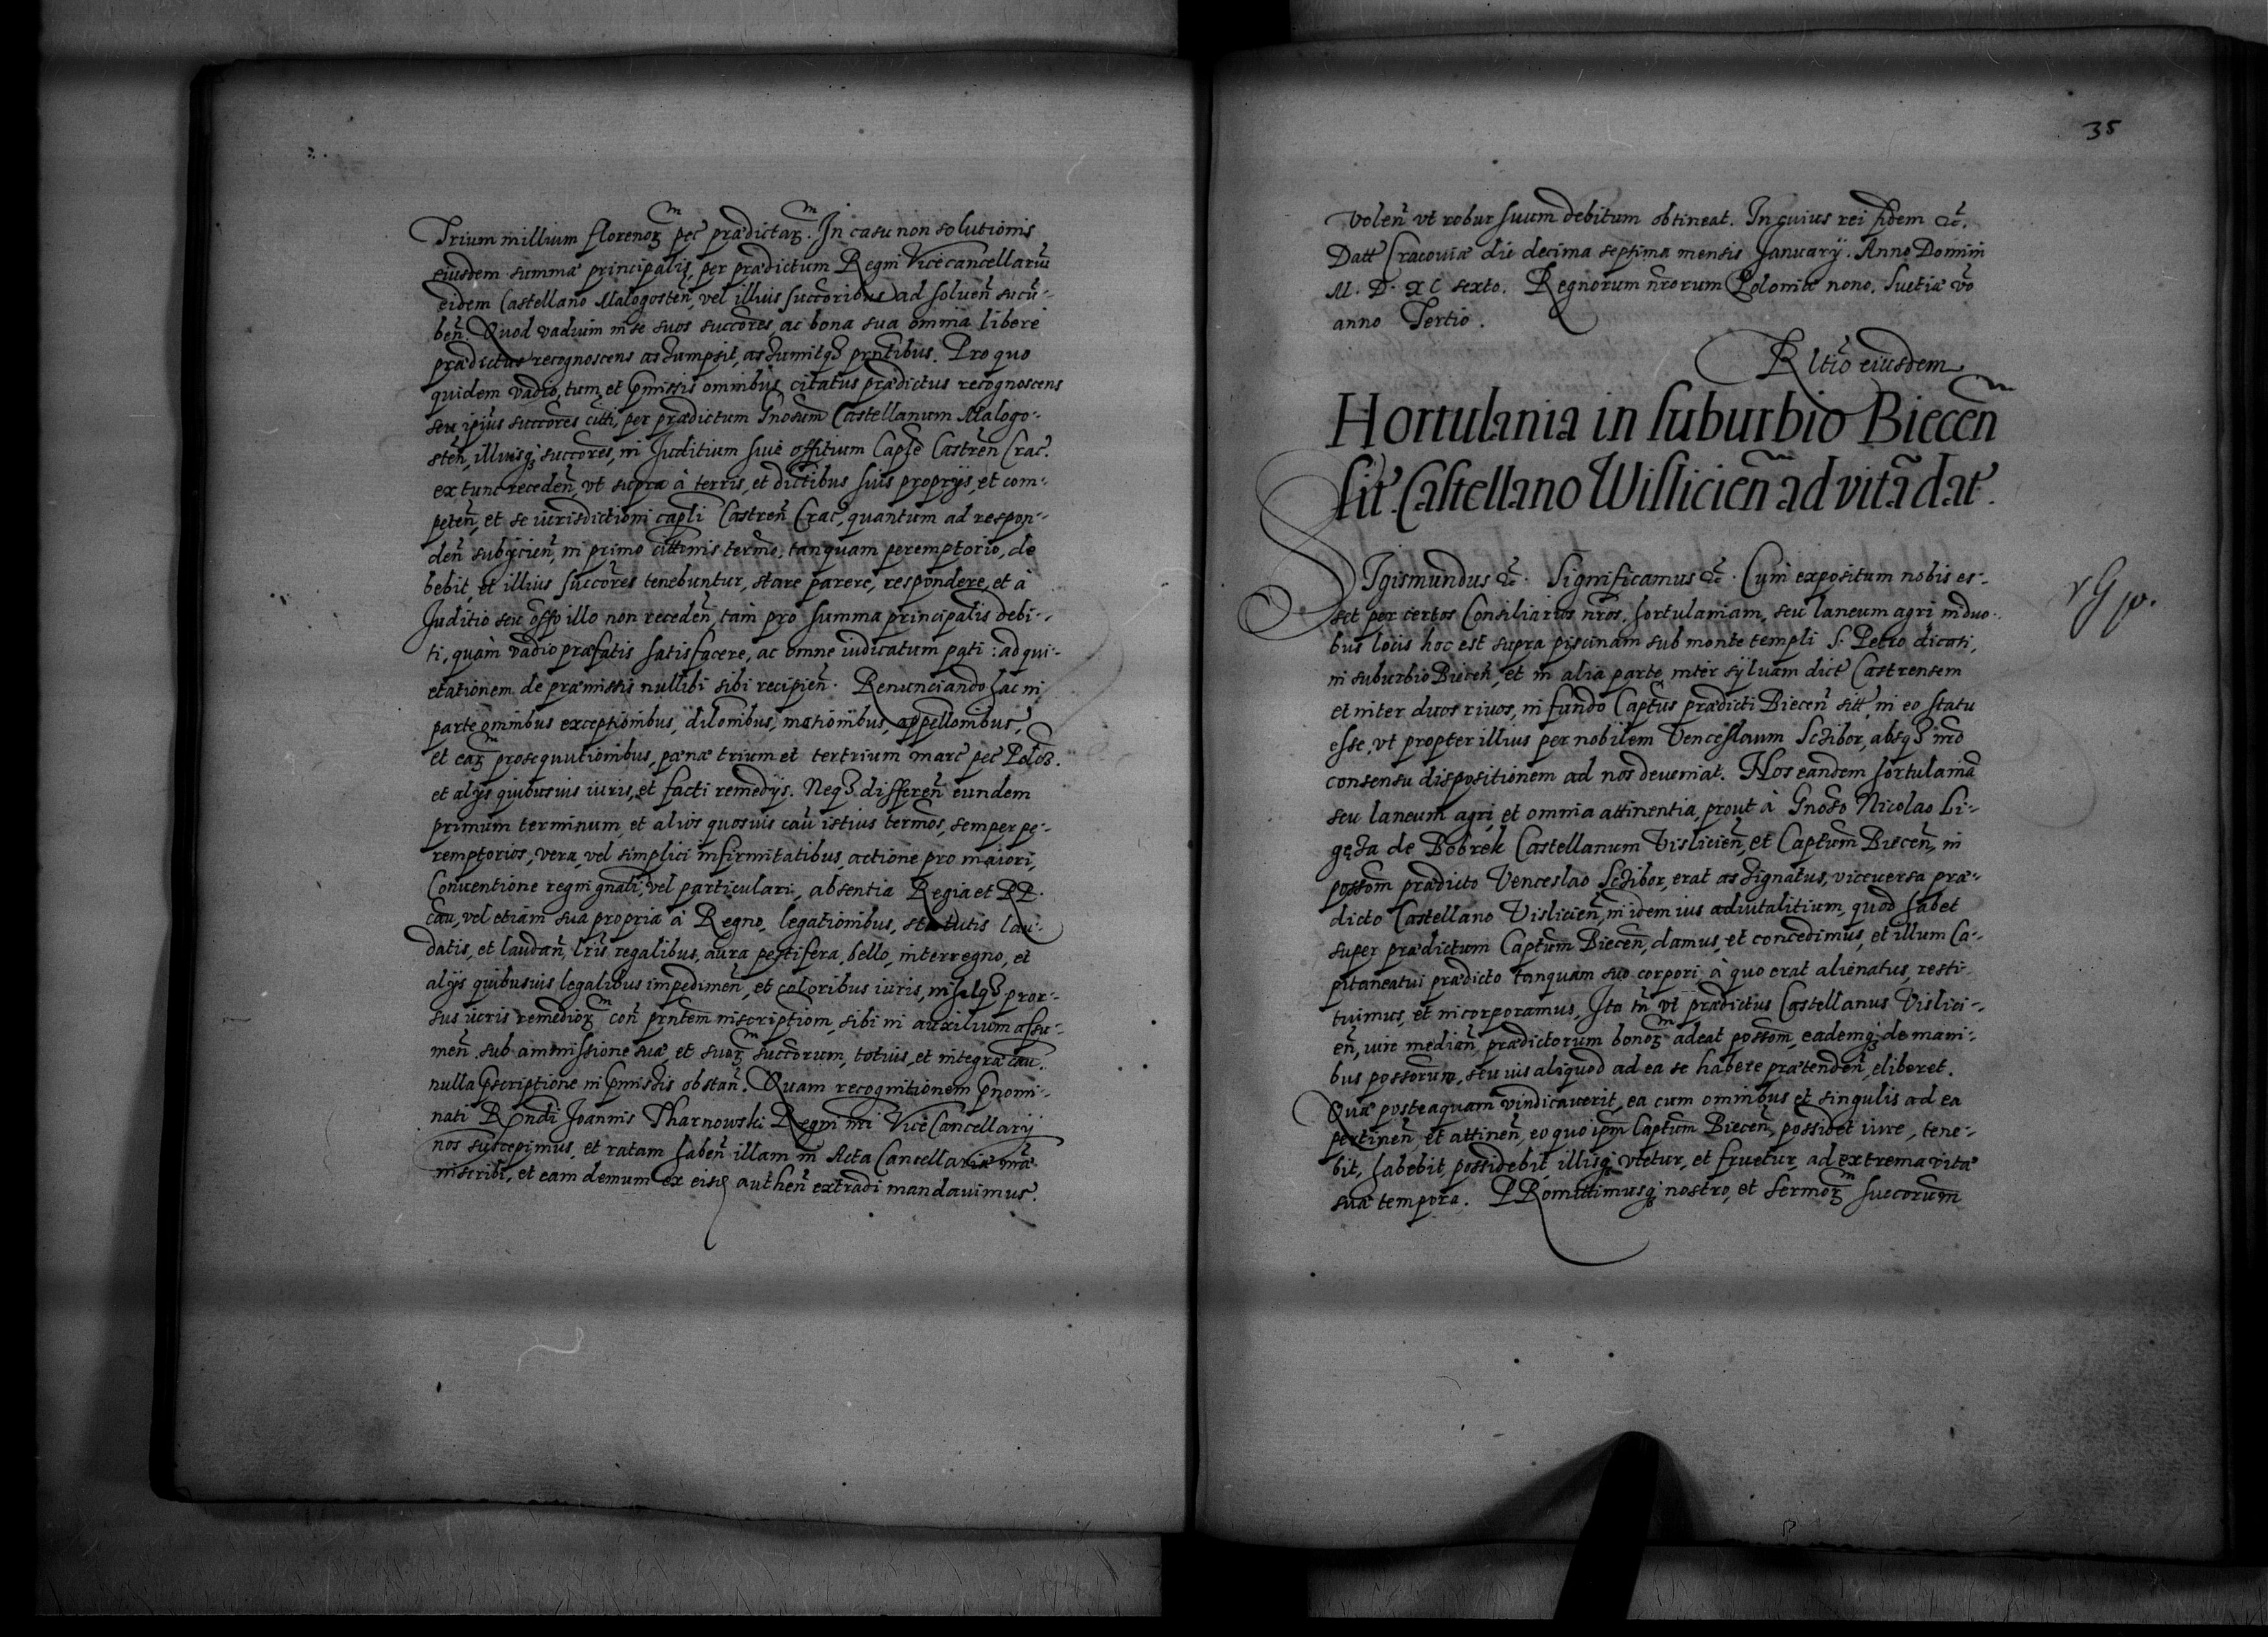 Trium millium florenoꝝ pec̃ prædictaꝝ. In casu non solutionis
eiusdem summæ principalis, per prædictum Regni Vicecancellariũ
eidem Castellano Malogosten̄, vel illius succõribus ad soluen̄ sucũ-
ben̄. Quod vadium in se suos succõres, ac bona sua omnia libere
prædictus recognoscens assumpsit, assumitqꝫ prñtibus. Pro quo
quidem vadio, tum et p̃missis omnibus citatus prædictus recognoscens
seu ipsius succõres citti, per prædictum Gnosum Castellanum Malogo-
sten̄, illiusqꝫ succõres, in Juditium siue offitium Caple Castren̄ Crac̃.
ex tunc receden̄, vt supra à terris, et dictibus suis proprijs, et com-
peten̄, et se iurisdictioni capli Castren̄ Crac̃, quantum ad respon-
den̄ subijcien̄, in primo cittonis termo, tanquam peremptorio, de
bebit, et illius succõres tenebuntur, stare parere, respondere, et à
Juditio seu offo illo non receden̄ tam pro summa principalis debi-
ti, quàm vadio præfatis satisfacere, ac omne iudicatum pati: ad qui-
etationem de præmissis nullibi sibi recipien̄. Renunciando hac in
parte omnibus exceptionibus, dilonibus, mationibus, appellonibus,
et eaꝝ prosequutionibus, pænæ trium et tertrium marc̃ pec̃ Poloꝝ.
et alijs quibusuis iuris, et facti remedijs. Neqꝫ differen̄ eundem
primum terminum, et alios quosuis cau istius termos, semper pe-
remptorios, vera, vel simplici infirmitatibus, actione pro maiori,
Conuentione regni gnali, vel particulari, absentia Regia et RP.
cau, vel etiam sua propria à Regno, legationibus, statutis lau-
datis, et laudan̄, lr̃is regalibus, aura pestifera, bello, interregno, et
alijs quibusuis legalibus impedimen̄, et coloribus iuris, nihilqꝫ pror-
sus iuris remedioꝝ con̄ prñtem inscriptiom, sibi in auxilium assu-
men̄, sub ammissione suæ, et suoꝝ succorum, totius, et integræ cau.
nulla p̃scriptione in p̃missis obstan̄. Quam recognitionem p̃nomi-
nati Rñdi Joannis Tharnowski Regni nr̃i ViceCancellarij
nos suscepimus, et ratam haben̄ illam in Acta Cancellariæ nr̃æ
inscribi, et eam demum ex eisꝫ authen̄ extradi mandauimus.
35
volen̄ vt robur suum debitum obtineat. In cuius rei fidem &c̃.
Datt̃ Cracouiæ die decima septima mensis January. Anno Domini
M. D. XC sexto. Regnorum nr̃orum Poloniæ nono, Suetiæ vo
anno Tertio.
Rltio eiusdem
Hortulania in suburbio Biecen̄
sit̃. Castellano Wislicien̄ ad vitã dat̃.
SIgismundus &c̃. Significamus &c̃. Cum expositum nobis es-
set per certos Consiliarios nr̃os, hortulaniam, seu laneum agri in duo-
bus locis hoc est supra piscinam sub monte templi S. Petro dicati,
in suburbio Biecen̄, et in alia parte inter syluam dict̃ Castrensem
et inter duos riuos, in fundo Captus prædicti Biecen̄ sitt̃, in eo statu
esse, vt propter illius per nobilem Venceslaum Sczibor, absqꝫ nr̃o
consensu dispositionem ad nos deueniat. Nos eandem hortulaniã
seu laneum agri, et omnia attinentia, prout à Gnoso Nicolao Li-
gęza de Bobrek Castellanum Vislicien̄, et Captum Biecen̄, in
possom prædicto Venceslao Sczibor, erat assignatus, viceuersa præ-
dicto Castellano Vislicien̄, in idem ius aduitalitium, quod habet
super prædictum Captum Biecen̄, damus, et concedimus, et illum Ca-
pitaneatui prædicto tanquam suo corpori à quo erat alienatus, resti
tuimus, et incorporamus, Ita tn̄ vt prædictus Castellanus Vislici-
en̄, iure median̄, prædictorum bonoꝝ adeat possom, eademqꝫ de mani-
bus possorum, seu ius aliquod ad ea se habere prætenden̄, eliberet.
Quæ posteaquam vindicauerit, ea cum omnibus et singulis ad ea
pertinen̄ et attinen̄, eo quo ipm Captum Biecen̄, possidet iure, tene-
bit, habebit, possidebit, illisqꝫ vtetur, et fruetur, ad extrema vitæ
suæ tempora. PRomittimusqꝫ nostro, et sermoꝝ succorum